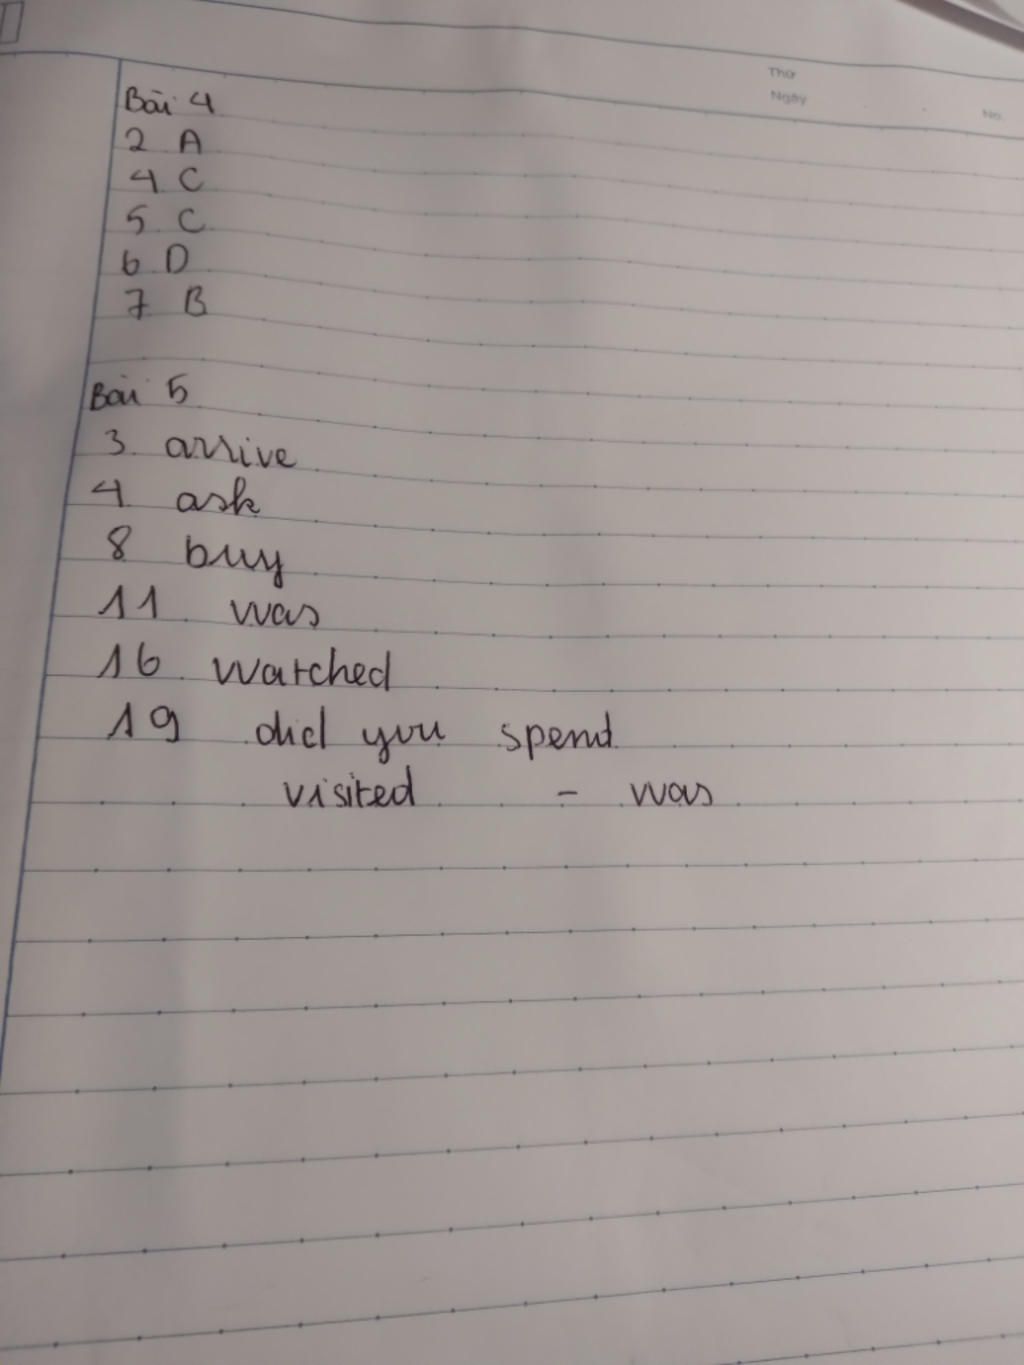 Thứ
Ngày
No.
Bài 4
2 A
4 C
5 C
6 D
7 B
Bài 5
3. arrive
4. ask
8 buy
11 was
16. watched
19 did you spend
visited - was